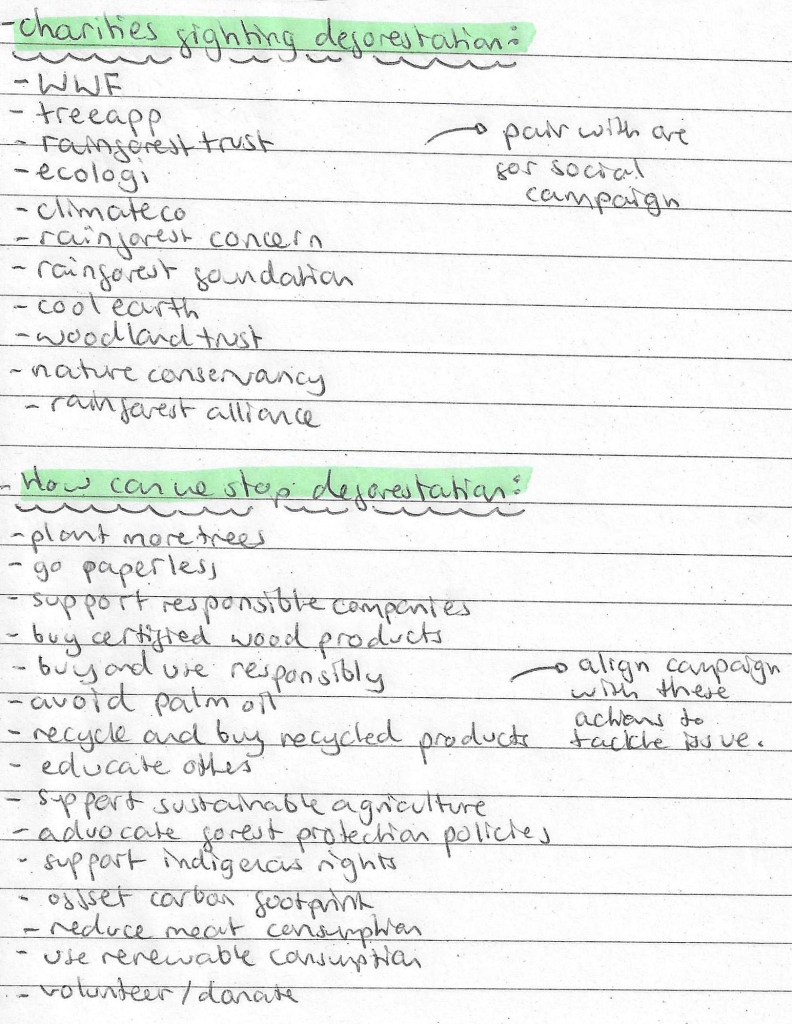 - charities fighting deforestation:
- WWF
- treeapp
- rainforest trust
- ecologi
- climateco
- rainforest concern
- rainforest foundation
- cool earth
- woodland trust
- nature conservancy
- rainforest alliance
→ pair with one
for social
campaign
- How can we stop deforestation:
- plant more trees
- go paperless
- support responsible companies
- buy certified wood products
- buy and use responsibly
- avoid palm oil
- recycle and buy recycled products
- educate others
- support sustainable agriculture
- advocate forest protection policies
- support indigenous rights
- offset carbon footprint
- reduce meat consumption
- use renewable consumption
- volunteer / donate
→ align campaign
with these
actions to
tackle issue.